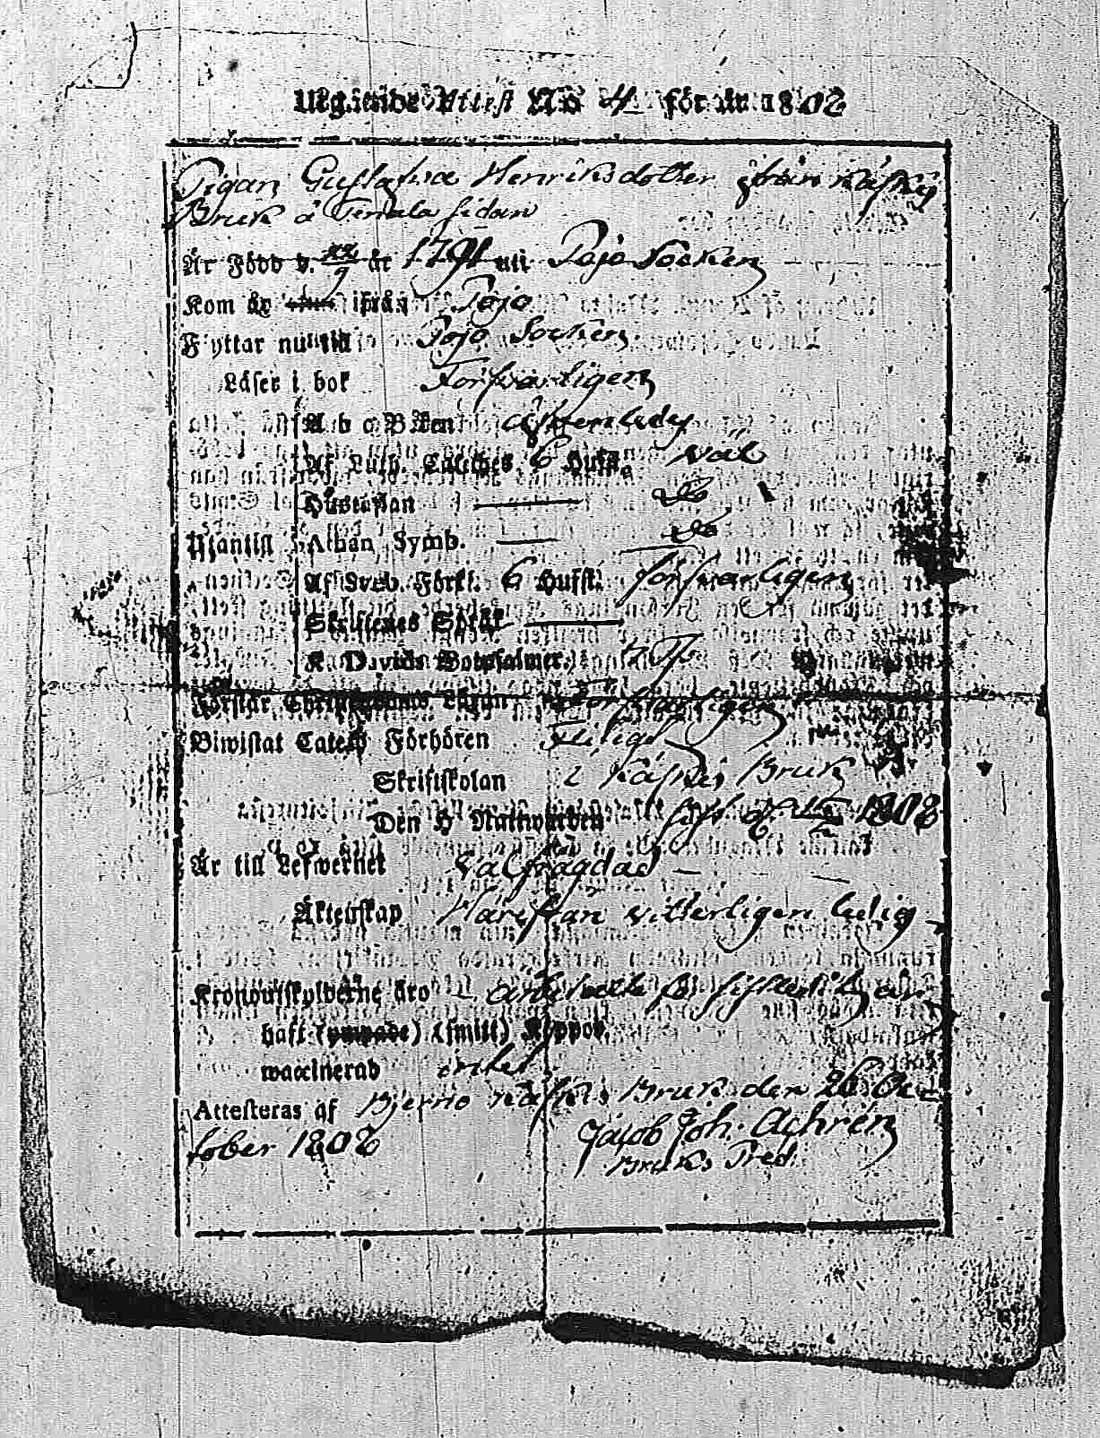 Utgående Attest No 4 för år 1808
Pigan Gustafva Henriksdotter från Kåskis
Bruk å Tenala sidan
Är Född d. 22/9 år 1791 uti Pojo Socken
Kom år ifrån Pojo
Flyttar nu till Pojo Socken
Läser i bok Försvarligen
A b c Boken
Af Luth. Cateches 6 Hufst. väl
Hustaflan Do
Utantill Athan. Symb. Do
Af Sveb. Förkl. 6 Hufst. försvarligen
Skriftenes Språk
K. Davids Botpsalmer.
Förstår Christendoms Läran Försvarligen
Biwistat Catech Förhören Fliligt
Skriftskolan i Kåskis Bruk
Den H Nattwarden sist d. 1808
Är till Lefwernet Välfrägdad
Äktenskap Härifrån vitterligen ledig
Kronoutskylderne äro
haft (ympade) (smitt) Koppor
waccinerad
Attesteras af Bjerno Kåskis Bruk den 26 Oc-
tober 1808 Jacob Joh. Achrén
Bruks Pred.